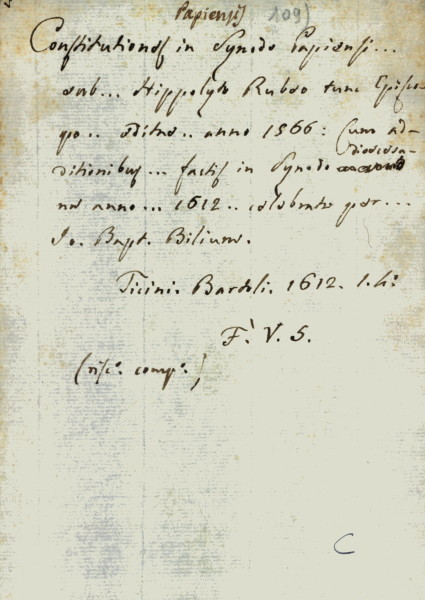 Papiensis 109)
Constitutiones in Synodo Papiensi...
sub... Hippolyto Rubeo tunc Episco-
po.. editae.. anno 1566: Cum ad-
ditionibus... factis in Synodo dioecesa-
na anno... 1612.. celebrata per...
Jo. Bapt. Bilium.
Ticini. Bardoli. 1612. 1. 4º
F. V. 5.
(risc. comp.)
C